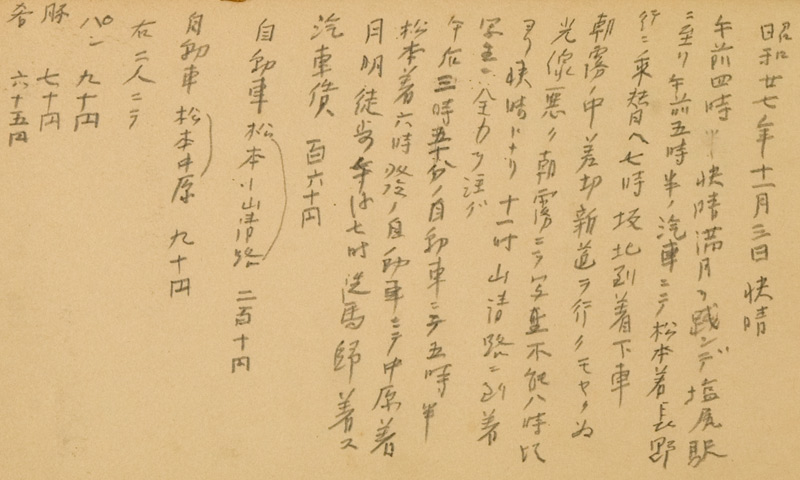 昭和廿七年十一月三日 快晴
午前四時半快晴満月ヲ践ンデ塩尻駅
ニ至リ午前五時半ノ汽車ニテ松本着長野
行ニ乗替ヘ七時坂北到着下車
朝霧ノ中差切新道ヲ行クモヤノ為
光線悪ク朝霧ニテ写生不能八時頃
ヨリ快晴トナリ十一時山清路ニ到着
写生ニ全力ヲ注グ
午后三時五十分ノ自動車ニテ五時半
松本着六時発ノ自動車ニテ中原着
月明徒歩午后七時洗馬帰着ス
汽車賃 百六十円
自動車 松本ヨリ山清路 二百十円
自動車 松本中原 九十円
右二人ニテ
パン 九十円
豚 七十円
六十五円